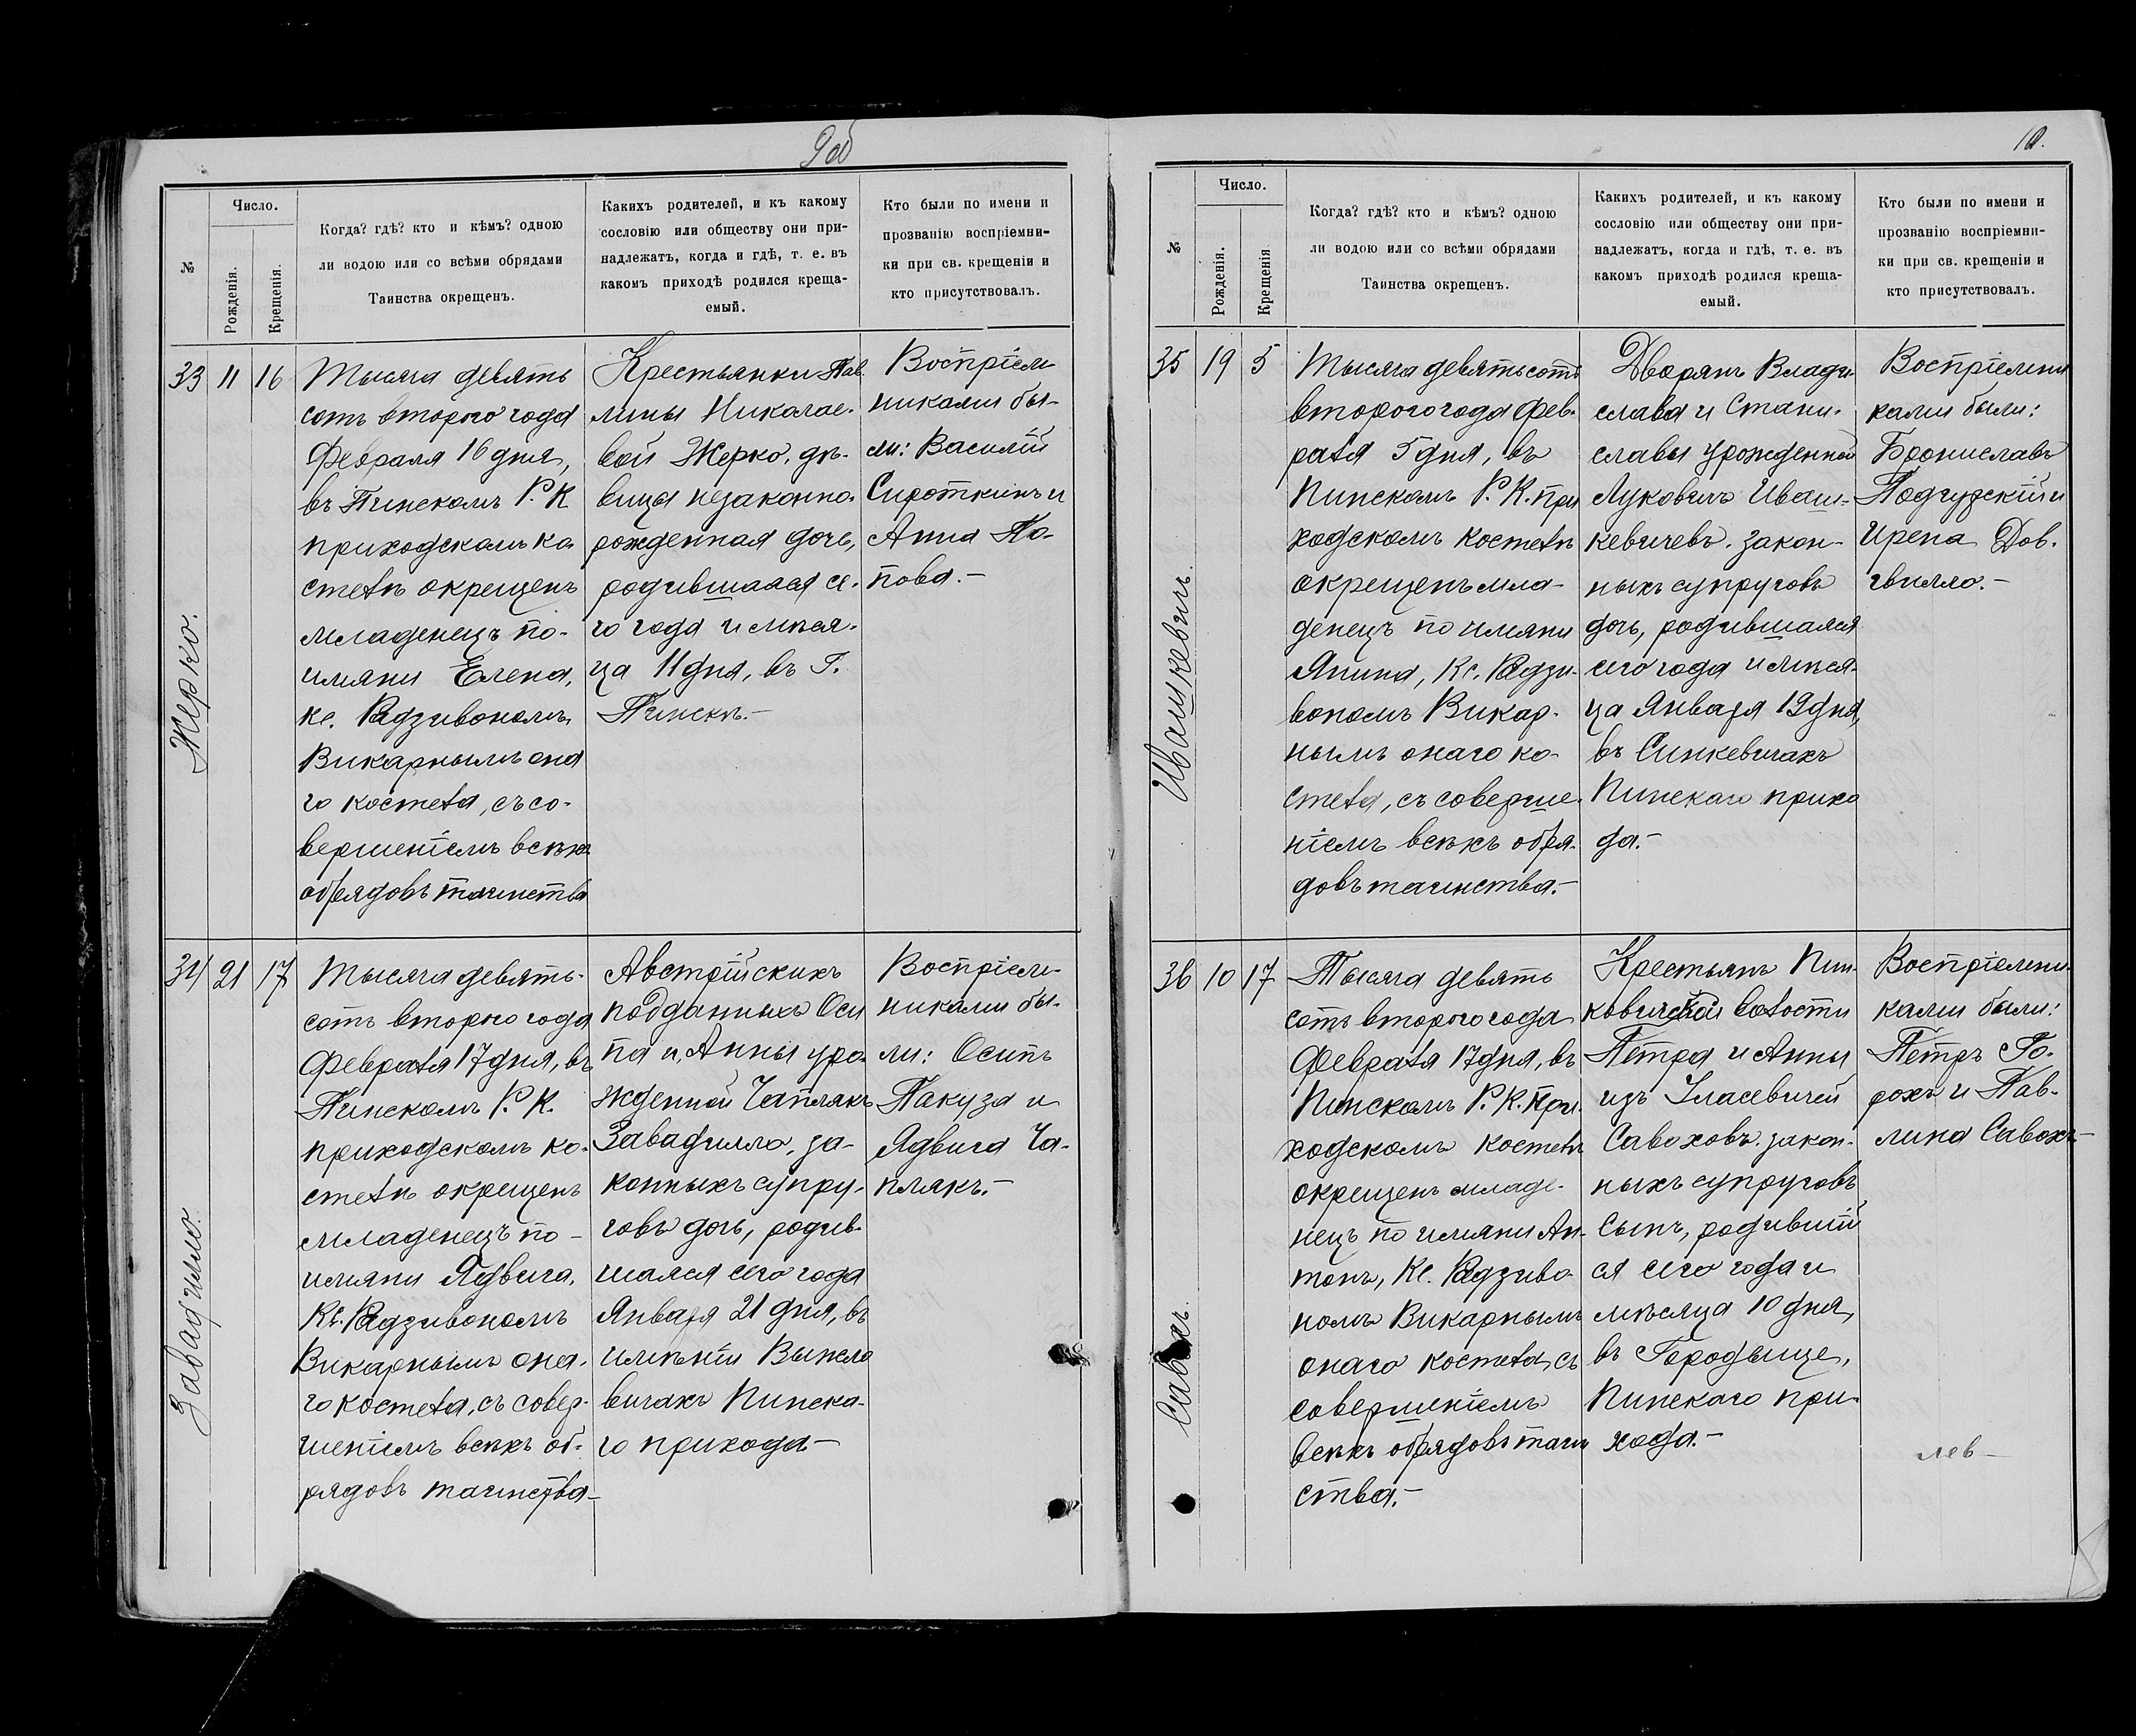 9об
№
Число.
Рожденія.
Крещенія.
Когда? гдѣ? кто и кѣмъ? одною
ли водою или со всѣми обрядами
Таинства окрещенъ.
Каихъ родителей, и къ какому
сословію или обществу они при-
надлежатъ, когда и гдѣ, т. е. въ
какомъ приходѣ родился креща-
емый.
Кто были по имени и
прозванію воспріемни-
ки при св. крещеніи и
кто присутствовалъ.
33 11 16
Жерко.
Тысяча девять
сотъ второго года
Февраля 16 дня,
въ Пинскомъ Р. К
приходскомъ ко
стелѣ окрещенъ
младенецъ по-
имяни Елена,
кс. Радзивономъ
Викарнымъ она
го костела, съ со-
вершеніемъ всѣхъ
обрядовъ таинства
Крестьянки Пав
лины Николае-
вой Жерко, дѣ-
вицы незаконно-
рожденная дочь,
родившаяся се-
го года и мѣся-
ца 11 дня, въ Г.
Пинскѣ.-
Воспріем
никами бы-
ли: Василій
Сироткинъ и
Анна По-
пова.-
34 21 17
Завадилло.
Тысяча девять-
сотъ второго года
Февраля 17 дня, въ
Пинскомъ Р. К.
приходскомъ ко-
стелѣ окрещенъ
младенецъ по-
имяни Ядвига,
Кс. Радзивономъ
Викарнымъ она-
го костела, съ совер-
шеніемъ всѣхъ об-
рядовъ таинства-
Австрійскихъ
подданныхъ Оси
па и Анны уро
жденной Чаплякъ
Завадилло, за-
конныхъ супру-
говъ дочь, родив-
шаяся сего года
Января 21 дня, въ
имѣніи Выжло
вичахъ Пинска-
го прихода-
Воспріем-
никами бы-
ли: Осипъ
Пакуза и
Ядвига Ча-
плякъ.-
10.
№
Число.
Рожденія.
Крещенія
Когда? гдѣ? кто и кѣмъ? одною
ли водою или со всѣми обрядами
Таинства окрещенъ.
Какихъ родителей, и къ какому
сословію или обществу они при-
надлежатъ, когда и гдѣ, т. е. въ
какомъ приходѣ родился креща-
емый.
Кто были по имени и
прозванію воспріемни-
ки при св. крещеніи и
кто присутствовалъ.
35 19 5
Ивашкевичъ.
Тысяча девятьсотъ
второго года Фев-
раля 5 дня, въ
Пинскомъ Р. К. при
ходскомъ костелѣ
окрещенъ мла-
денецъ по имяни
Янина, Кс. Радзи-
вономъ Викар-
нымъ онаго ко-
стела, съ соверше-
ніемъ всѣхъ обря-
довъ таинства.-
Дворянъ Влади-
слава и Стани-
славы урожденной
Луковичъ Иваш-
кевичевъ. закон-
ныхъ супруговъ
дочь, родившаяся
сего года и мѣся-
ца Января 19 дня,
въ Синкевичахъ
Пинскаго прихо
да.-
Воспріемни
ками были:
Брониславъ
Подгузскій и
Ирена Дов-
гвилло.-
36 10 17
Савохъ.
Тысяча девять
сотъ второго года
Февраля 17 дня, въ
Пинскомъ Р. К. При-
ходскомъ костелѣ
окрещенъ младе-
нецъ по имяни Ан-
тонъ, Кс. Радзиво-
номъ Викарнымъ
онаго костела, съ
совершеніемъ
всѣхъ обрядовъ таин
ства.-
Крестьянъ Пин-
ковичской волости
Петра и Анны
изъ Уласевичей
Савоховъ. закон-
ныхъ супруговъ
Сынъ, родившій
ся сего года и
мѣсяца 10 дня,
въ Городыще,
Пинскаго при-
хода.-
Воспріемни-
ками были:
Петръ Го-
рохъ и Пав-
лина Савохъ-
лев-